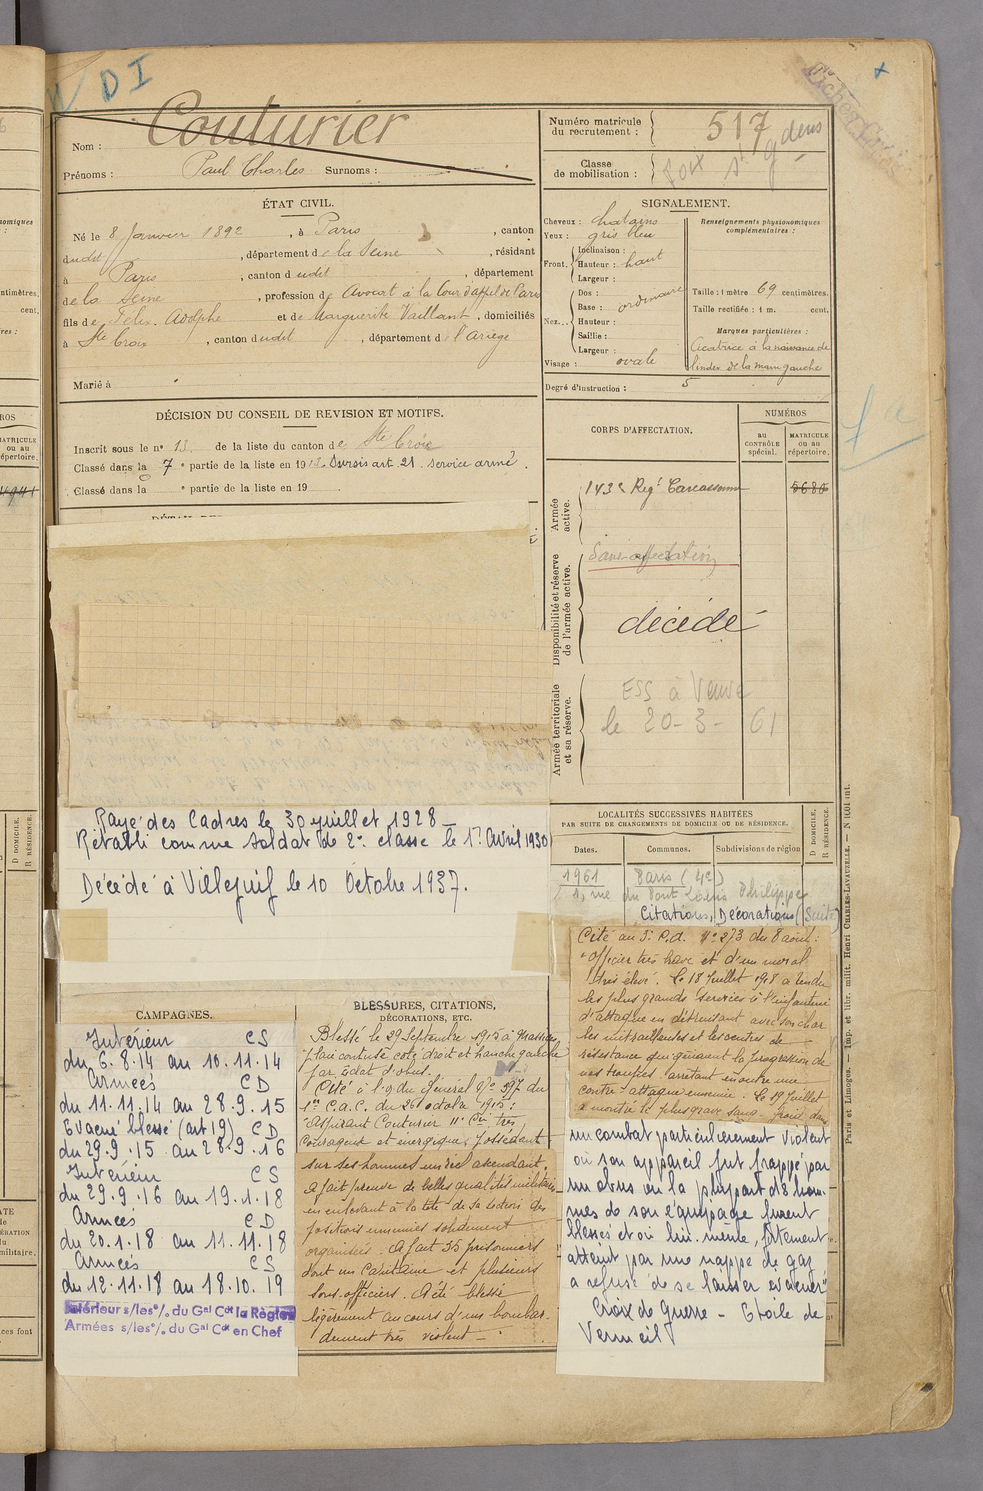 D I
Nom : Couturier
Prénoms : Paul Charles Surnoms :
Numéro matricule
du recrutement : 517
Classe
de mobilisation :
ÉTAT CIVIL.
Né le 8 Janvier 1892, à Paris, canton
dudit, département de la Seine, résidant
à Paris, canton dudit, département
de la Seine, profession de Avocat à la Cour d'appel de Paris
fils de Félix Adolphe et de Marguerite Vaillant, domiciliés
à Ste Croix, canton dudit, département de l'Ariège
Marié à
SIGNALEMENT.
Cheveux : chatains
Yeux : gris bleu
Front. Inclinaison :
Hauteur : haut
Largeur :
Nez... Dos :
Base : ordinaire
Hauteur :
Saillie :
Largeur :
Visage : ovale
Renseignements physionomiques
complémentaires :
Taille : 1 mètre 69 centimètres.
Taille rectifiée : 1 m. cent.
Marques particulières :
Cicatrice à la naissance de
l'index de la main gauche
Degré d'instruction : 5
DÉCISION DU CONSEIL DE REVISION ET MOTIFS.
Inscrit sous le n° 13 de la liste du canton de Ste Croix
Classé dans la 7e partie de la liste en 1912. Sursis art. 21. service armé.
Classé dans la e partie de la liste en 19
CORPS D'AFFECTATION.
NUMÉROS
au
CONTRÔLE
spécial.
MATRICULE
ou au
répertoire.
Armée
active.
143e Regt Carcassonne
Disponibilité et réserve
de l'armée active.
Sans affectation
décédé
Armée territoriale
et sa réserve.
ESS à
le 20-3-61
Rayé des Cadres le 30 juillet 1928 —
Rétabli comme soldat de 2e classe le 1er Avril 1930
Décédé à Villejuif le 10 Octobre 1937.
LOCALITÉS SUCCESSIVES HABITÉES
PAR SUITE DE CHANGEMENTS DE DOMICILE OU DE RÉSIDENCE.
Dates.
Communes.
Subdivisions de région
D DOMICILE.
R RÉSIDENCE.
1961 Paris (4e)
1, rue du Pont Louis Philippe
Citations, Décorations (Suite)
Cité au 3e C.A. N° 273 du 8 août :
"Officier très brave et d'un moral
très élevé. Le 18 Juillet 1918 a rendu
les plus grands services à l'infanterie
d'attaque en détruisant avec son char
les mitrailleuses et les centres de
résistance qui gênaient la progression de
nos troupes arrêtant encore une
contre-attaque ennemie. Le 19 Juillet
a montré le plus grave sang-froid dans
un combat particulièrement violent
où son appareil fut frappé par
un obus où la plupart des hom-
mes de son équipage furent
blessés et où lui-même, fortement
atteint par une nappe de gaz
a refusé de se laisser évacuer"
Croix de Guerre - Etoile de
Vermeil
CAMPAGNES.
Intérieur CS
du 6.8.14 au 10.11.14
Armées CD
du 11.11.14 au 28.9.15
Evacué blessé (art 19) CD
du 29.9.15 au 28.9.16
Intérieur CS
du 29.9.16 au 19.1.18
Armées CD
du 20.1.18 au 11.11.18
Armées CS
du 12.11.18 au 18.10.19
Intérieur s/les °/. du Gal Cdt la Région
Armées s/les °/. du Gal Cdt en Chef
BLESSURES, CITATIONS,
DÉCORATIONS, ETC.
Blessé le 29 Septembre 1915 à Massiges
plaie contuse coté droit et hanche gauche
par éclat d'obus.
Cité à l'O. du Général N° 597 du
1er C.A.C. du 26 octobre 1915 :
"Aspirant Couturier 11e Cie très
courageux et energique, possédant
sur ses hommes un réel ascendant.
A fait preuve de belles qualités militaires
en enlevant à la tête de sa section des
positions ennemies solidement
organisées. A fait 35 prisonniers
dont un Capitaine et plusieurs
sous-officiers. A été blessé
légèrement au cours d'un bombar-
dement très violent —
Paris et Limoges. — Imp. et libr. milit. Henri CHARLES-LAVAUZELLE. — N 1601 int.